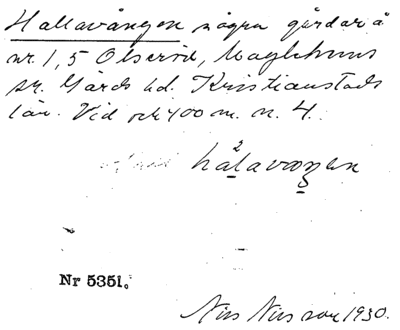 Hallavången några gårdar å
nr. 1, 5 Olseröd, Maglehems
sn. Gärds hd. Kristianstads
län. Vid och 400 m. n. 4.
hålavaŋen
Nr 5351.
Nils Nilsson 1930.